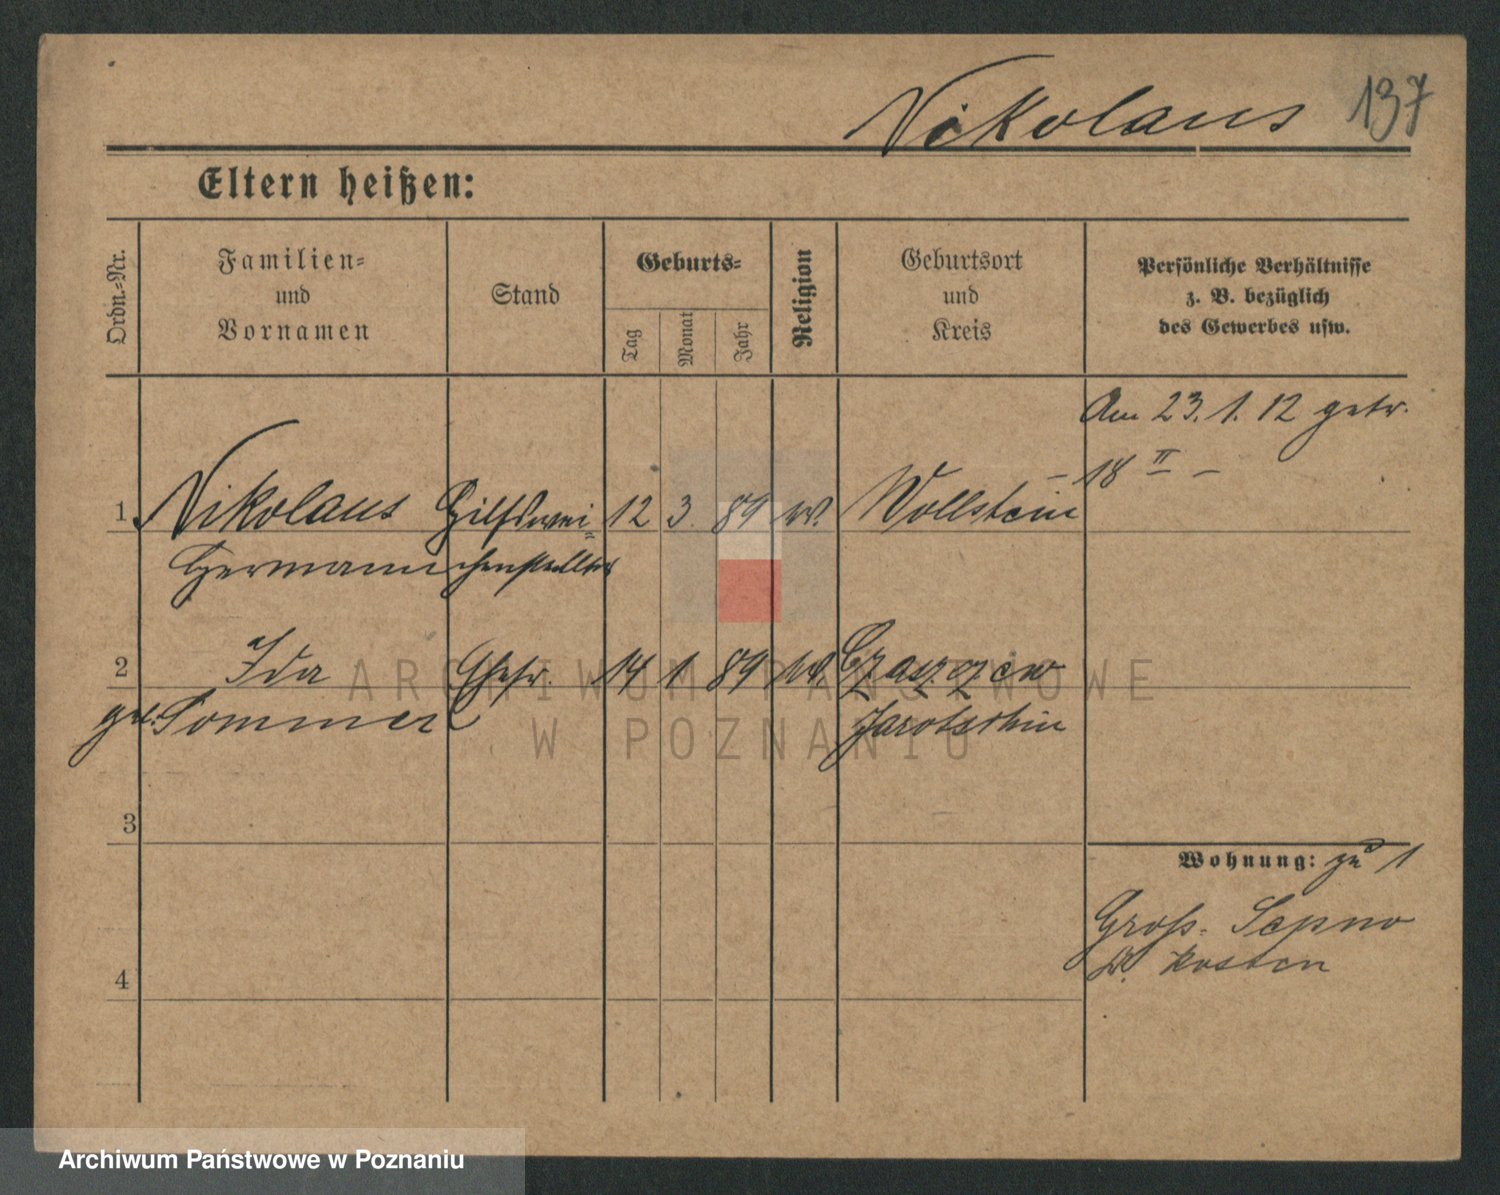 Nikolaus 137
Eltern heißen:
Ordn.-Nr.
Familien-
und
Vornamen
Stand
Geburts-
Tag
Monat
Jahr
Religion
Geburtsort
und
Kreis
Persönliche Verhältnisse
z. B. bezüglich
des Gewerbes usw.
Am 23. 1. 12 getr.
- 18 II -
1 Nikolaus Hilfswei- 12 3. 89 Wollstein
Hermann chensteller
2 Ida Ehefr. 14 1 89 Czaszczew
geb. Sommer Jarotschin
3
Wohnung: zu 1
Groß-Sepno
K. Kosten
4
ARCHIWUM PAŃSTWOWE
W POZNANIU
Archiwum Państwowe w Poznaniu